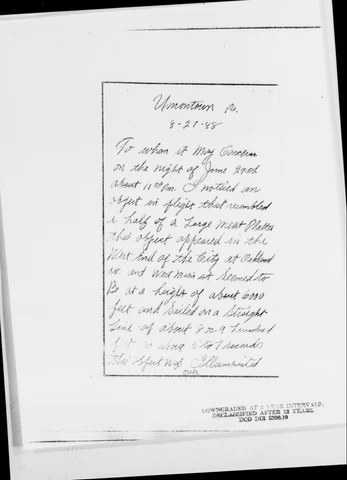 Uniontown Pa.
8-27-48
To whom it May Concern
on the night of June 29th
about 11 PM I noticed an
object in flight that resembled
a half of a Large Meat Platter
this object appeared in the
West End of the City at Oakland
and West Main st Seemed to
Be at a height of about 6000
feet and Sailed on a Straight
Line of about 8 or 9 hundred
feet in about 5 to 7 seconds
this object was Illuminated
over
DOWNGRADED AT 3 YEAR INTERVALS;
DECLASSIFIED AFTER 12 YEARS.
DOD DIR 5200.10